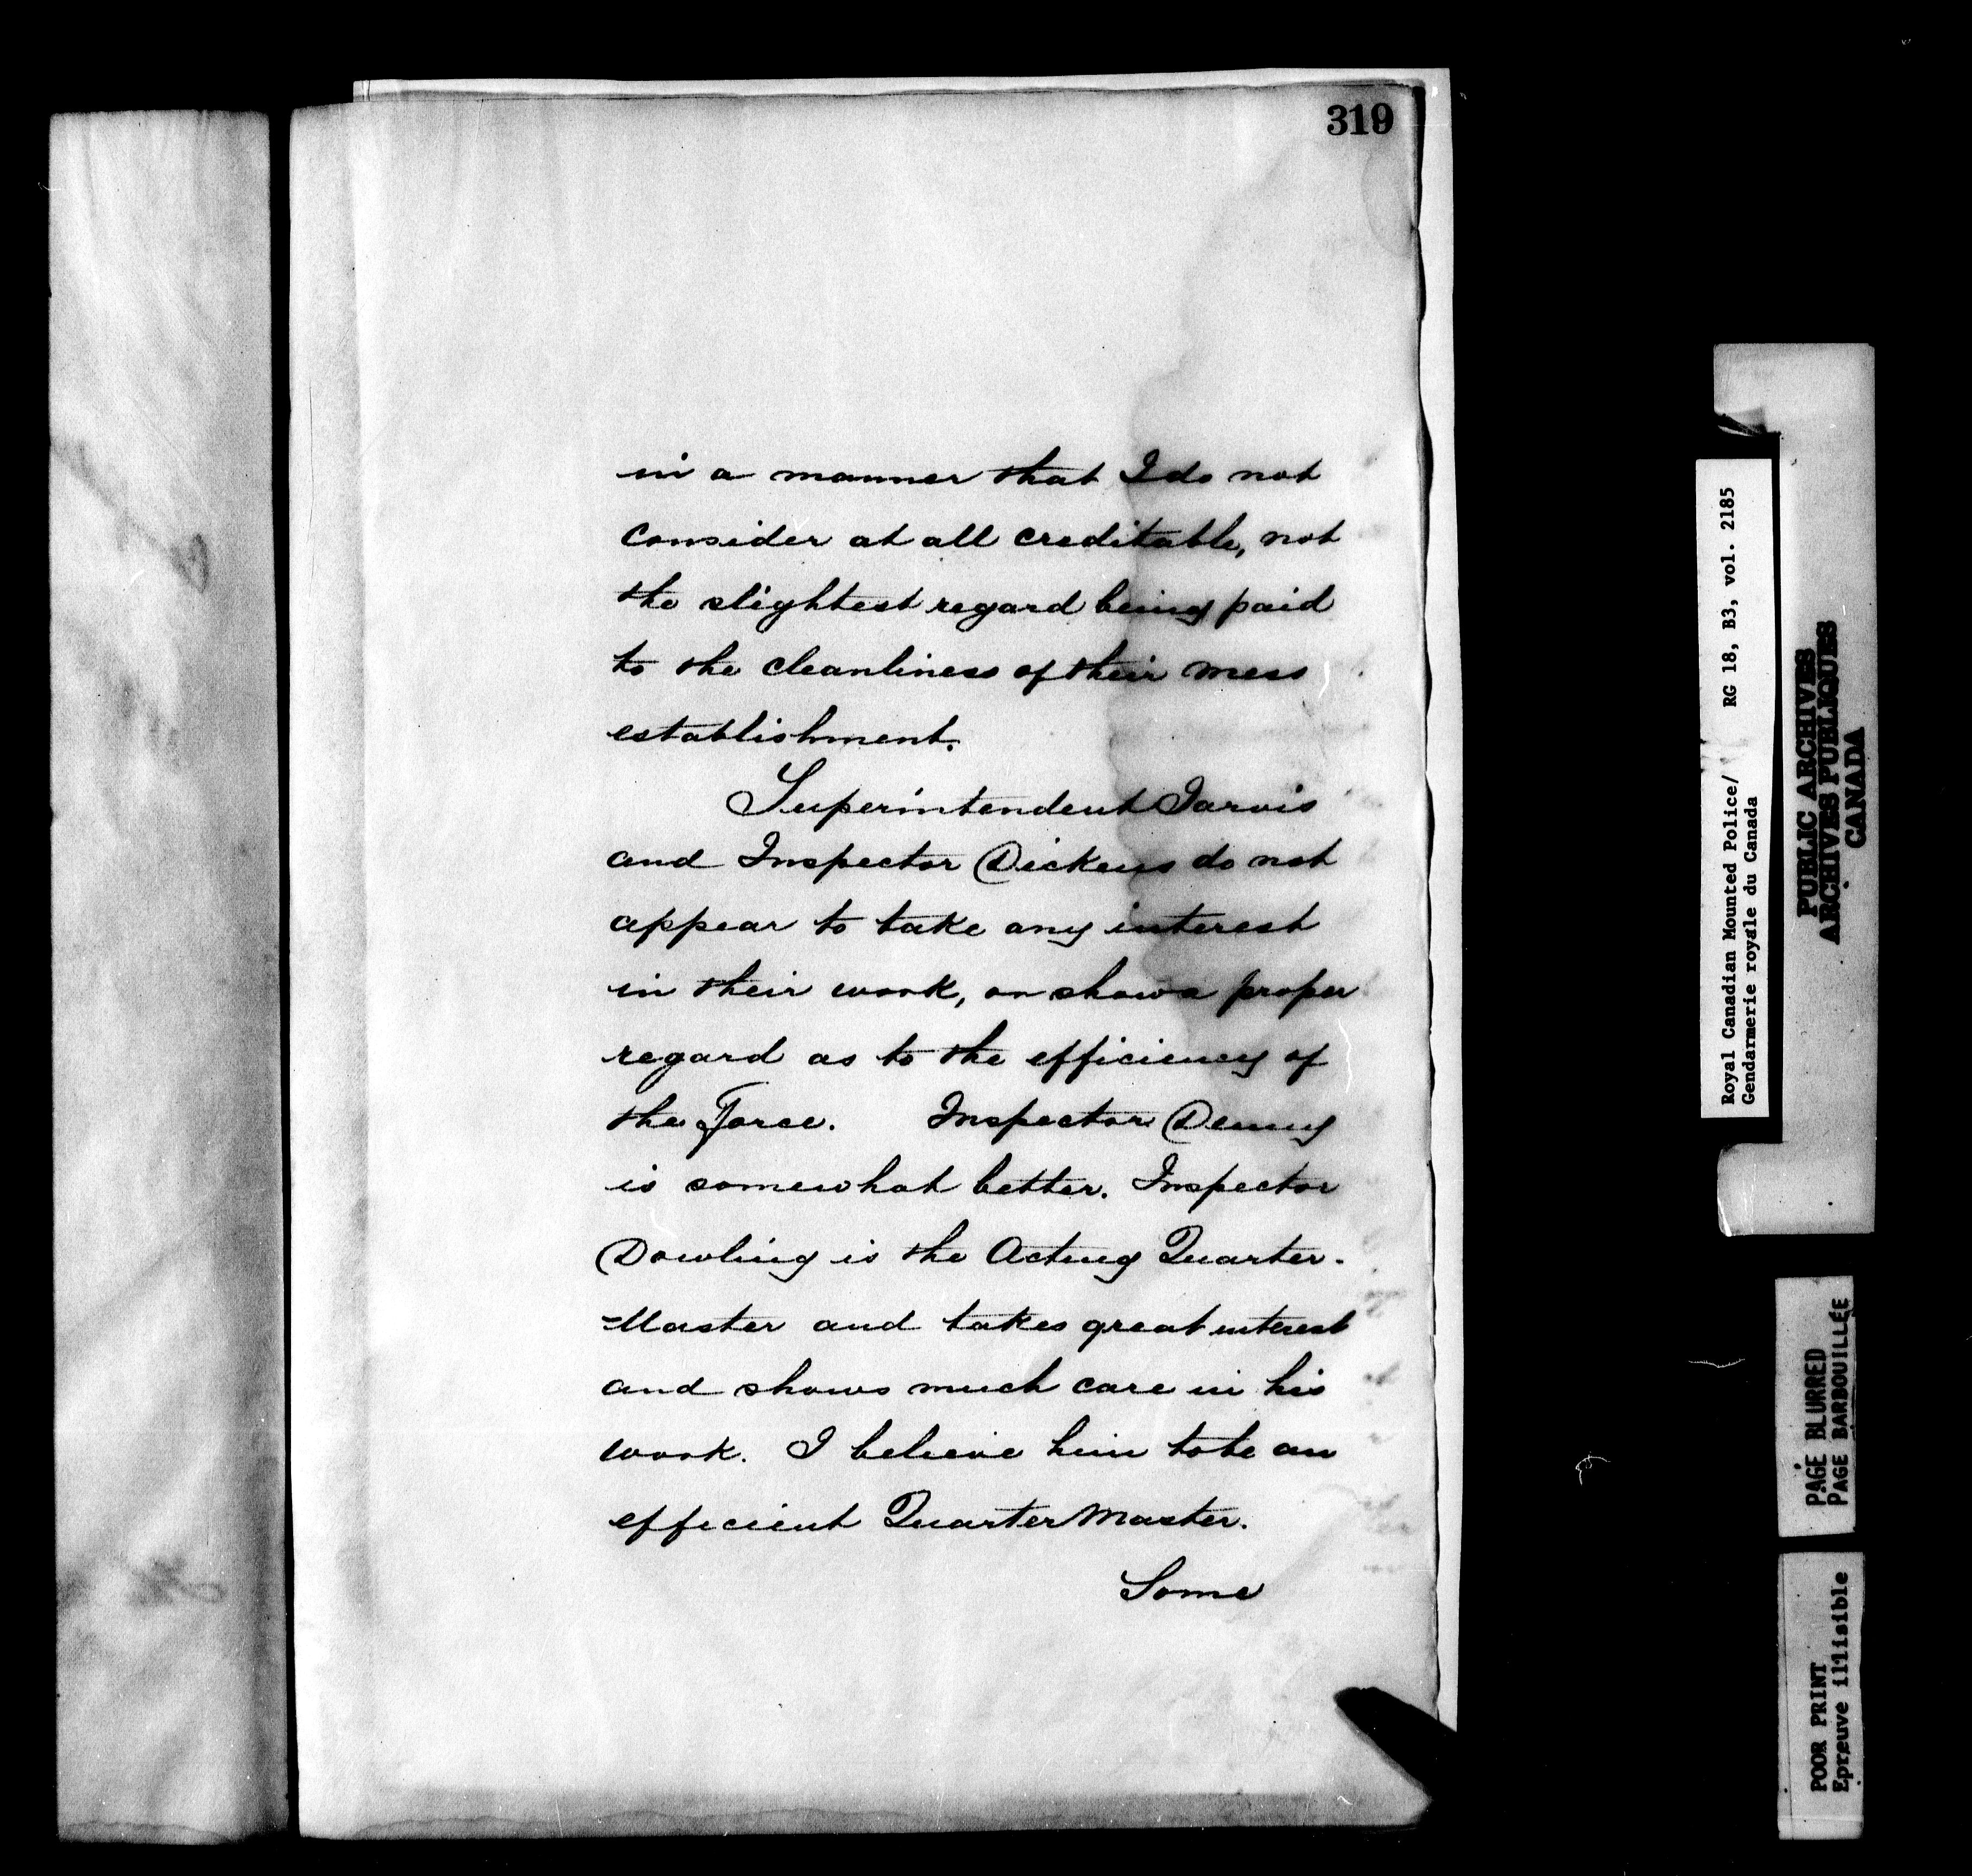 319
in a manner that I do not
consider at all creditable, not
the slightest regard being paid
to the cleanliness of their mess
establishment.
Superintendent Jarvis
and Inspector Dickens do not
appear to take any interest
in their work, or show a proper
regard as to the efficiency of
the Force. Inspector Denny
is somewhat better. Inspector
Dowling is the Acting Quarter-
Master and takes great interest
and shows much care in his
work. I believe him to be an
efficient Quarter Master.
Some
Royal Canadian Mounted Police/ RG 18, B3, vol. 2185
Gendarmerie royale du Canada
PUBLIC ARCHIVES
ARCHIVES PUBLIQUES
CANADA
PAGE BLURRED
PAGE BARBOUILLÉE
POOR PRINT
Epreuve illisible